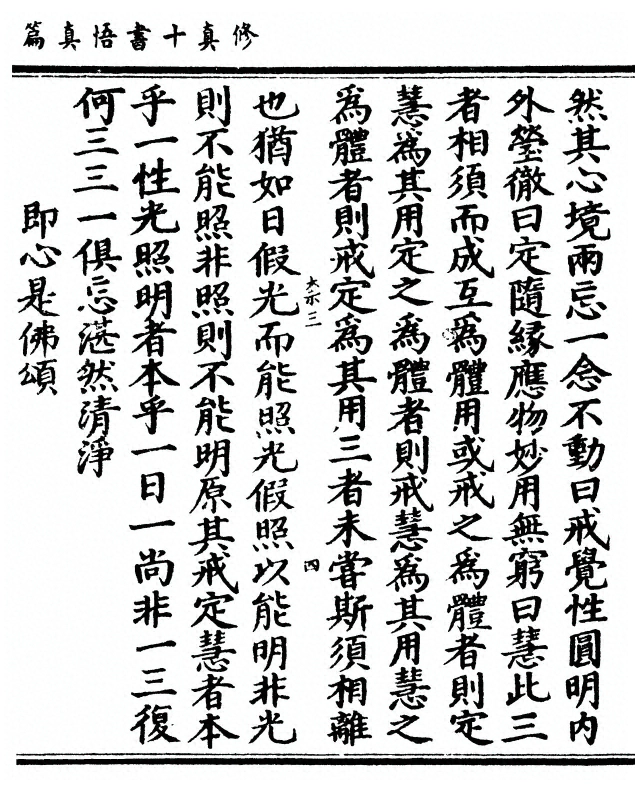 修真十書悟真篇
然其心境兩忘一念不動曰戒覺性圓明內
外瑩徹曰定隨緣應物妙用無窮曰慧此三
者相須而成互爲體用或戒之爲體者則定
慧爲其用定之爲體者則戒慧爲其用慧之
爲體者則戒定爲其用三者未嘗斯須相離
奈三 四
也猶如日假光而能照光假照以能明非光
則不能照非照則不能明原其戒定慧者本
乎一性光照明者本乎一日一尚非一三復
何三三一俱忘湛然清淨
即心是佛頌